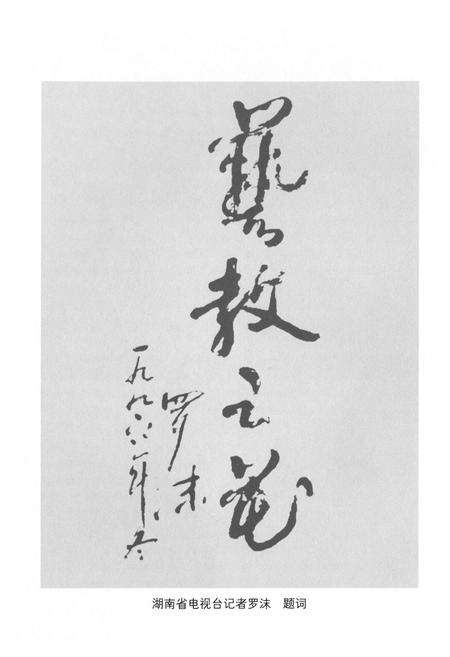 藝教之花
罗沫
一九九六年冬
湖南省电视台记者罗沫 题词